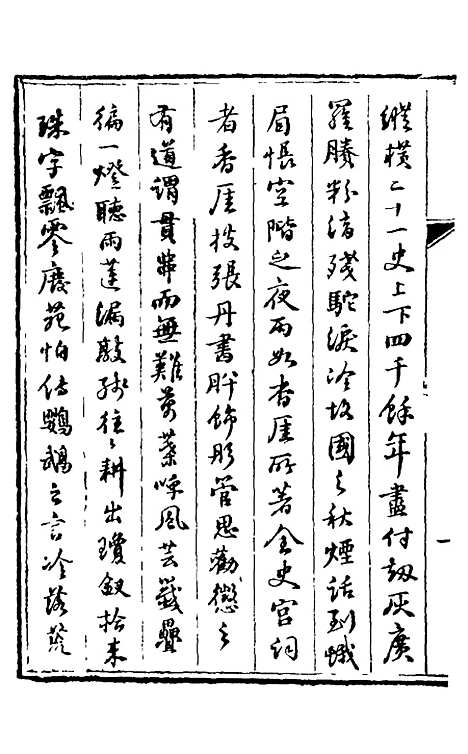 縱橫二十一史上下四千餘年盡付劫灰廣
羅賸粉渚殘駝淚冷故國之秋煙話到蛾
眉悵空階之夜雨如香厓所著金史宮詞
者香厓技張丹書肸飾彤管思勸懲之
有道謂貫串而無難蒐葉唫風芸籤疊
徧一燈聽雨蓮漏敲殘往往耕出瓊釵拾來
珠字飄零廢苑怕傳鸚鵡之言冷落荒
一